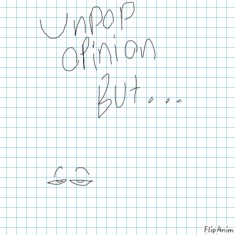 Unpop
opinion
But...
FlipAnim